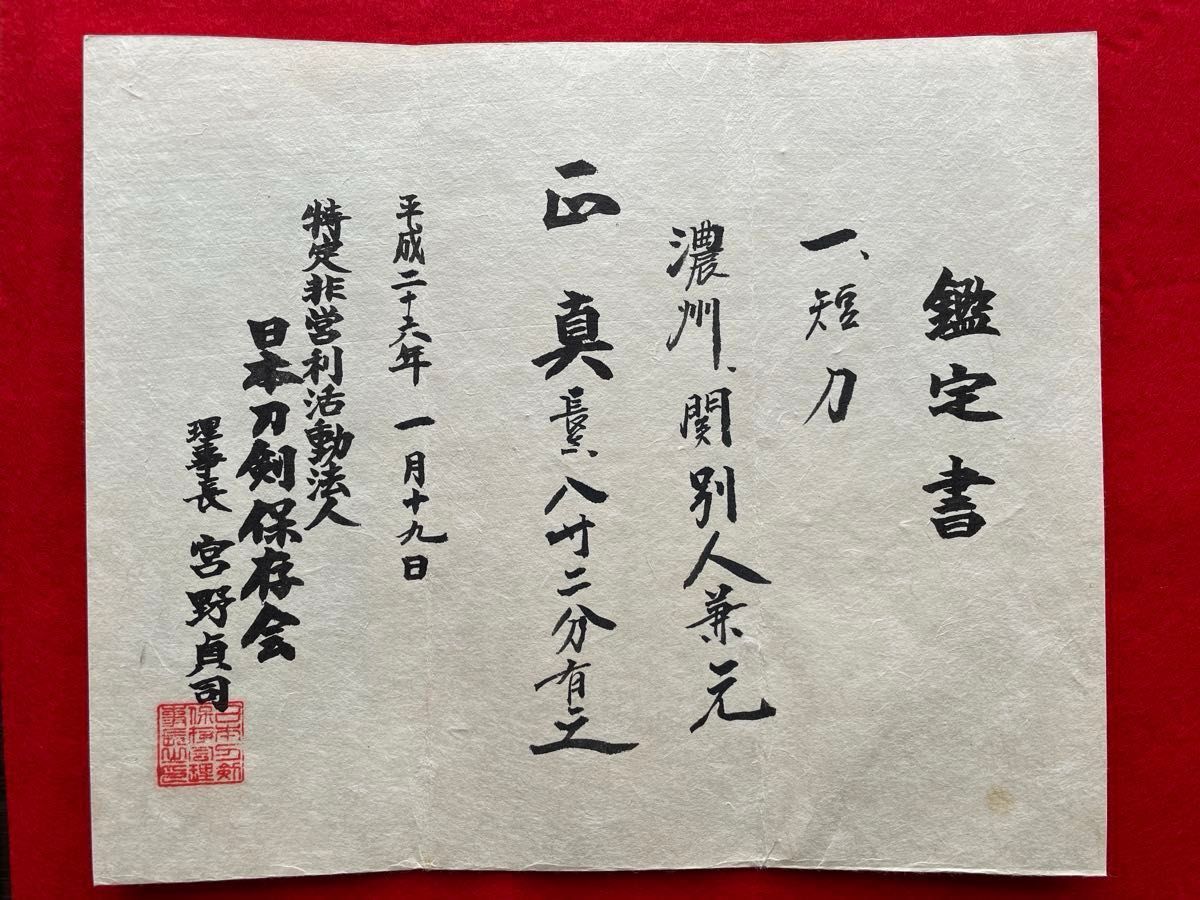 鑑定書
一、短刀
濃州、関別人兼元
正真 長サ八寸二分有之
平成二十六年 一月十九日
特定非営利活動法人
日本刀剣保存会
理事長 宮野貞司
日本刀剣
保存会理
事長之印